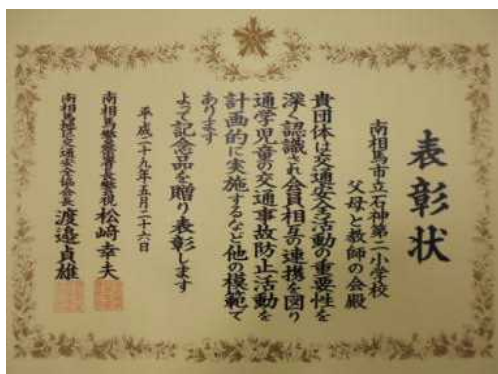 表彰状
南相馬市立石神第二小学校
父母と教師の会殿
貴団体は交通安全活動の重要性を
深く認識され会員相互の連携を図り
通学児童の交通事故防止活動を
計画的に実施するなど他の模範で
あります
よって記念品を贈り表彰します
平成二十九年五月二十六日
南相馬警察署長警視 松崎幸夫
南相馬地区交通安全協会長 渡邉貞雄